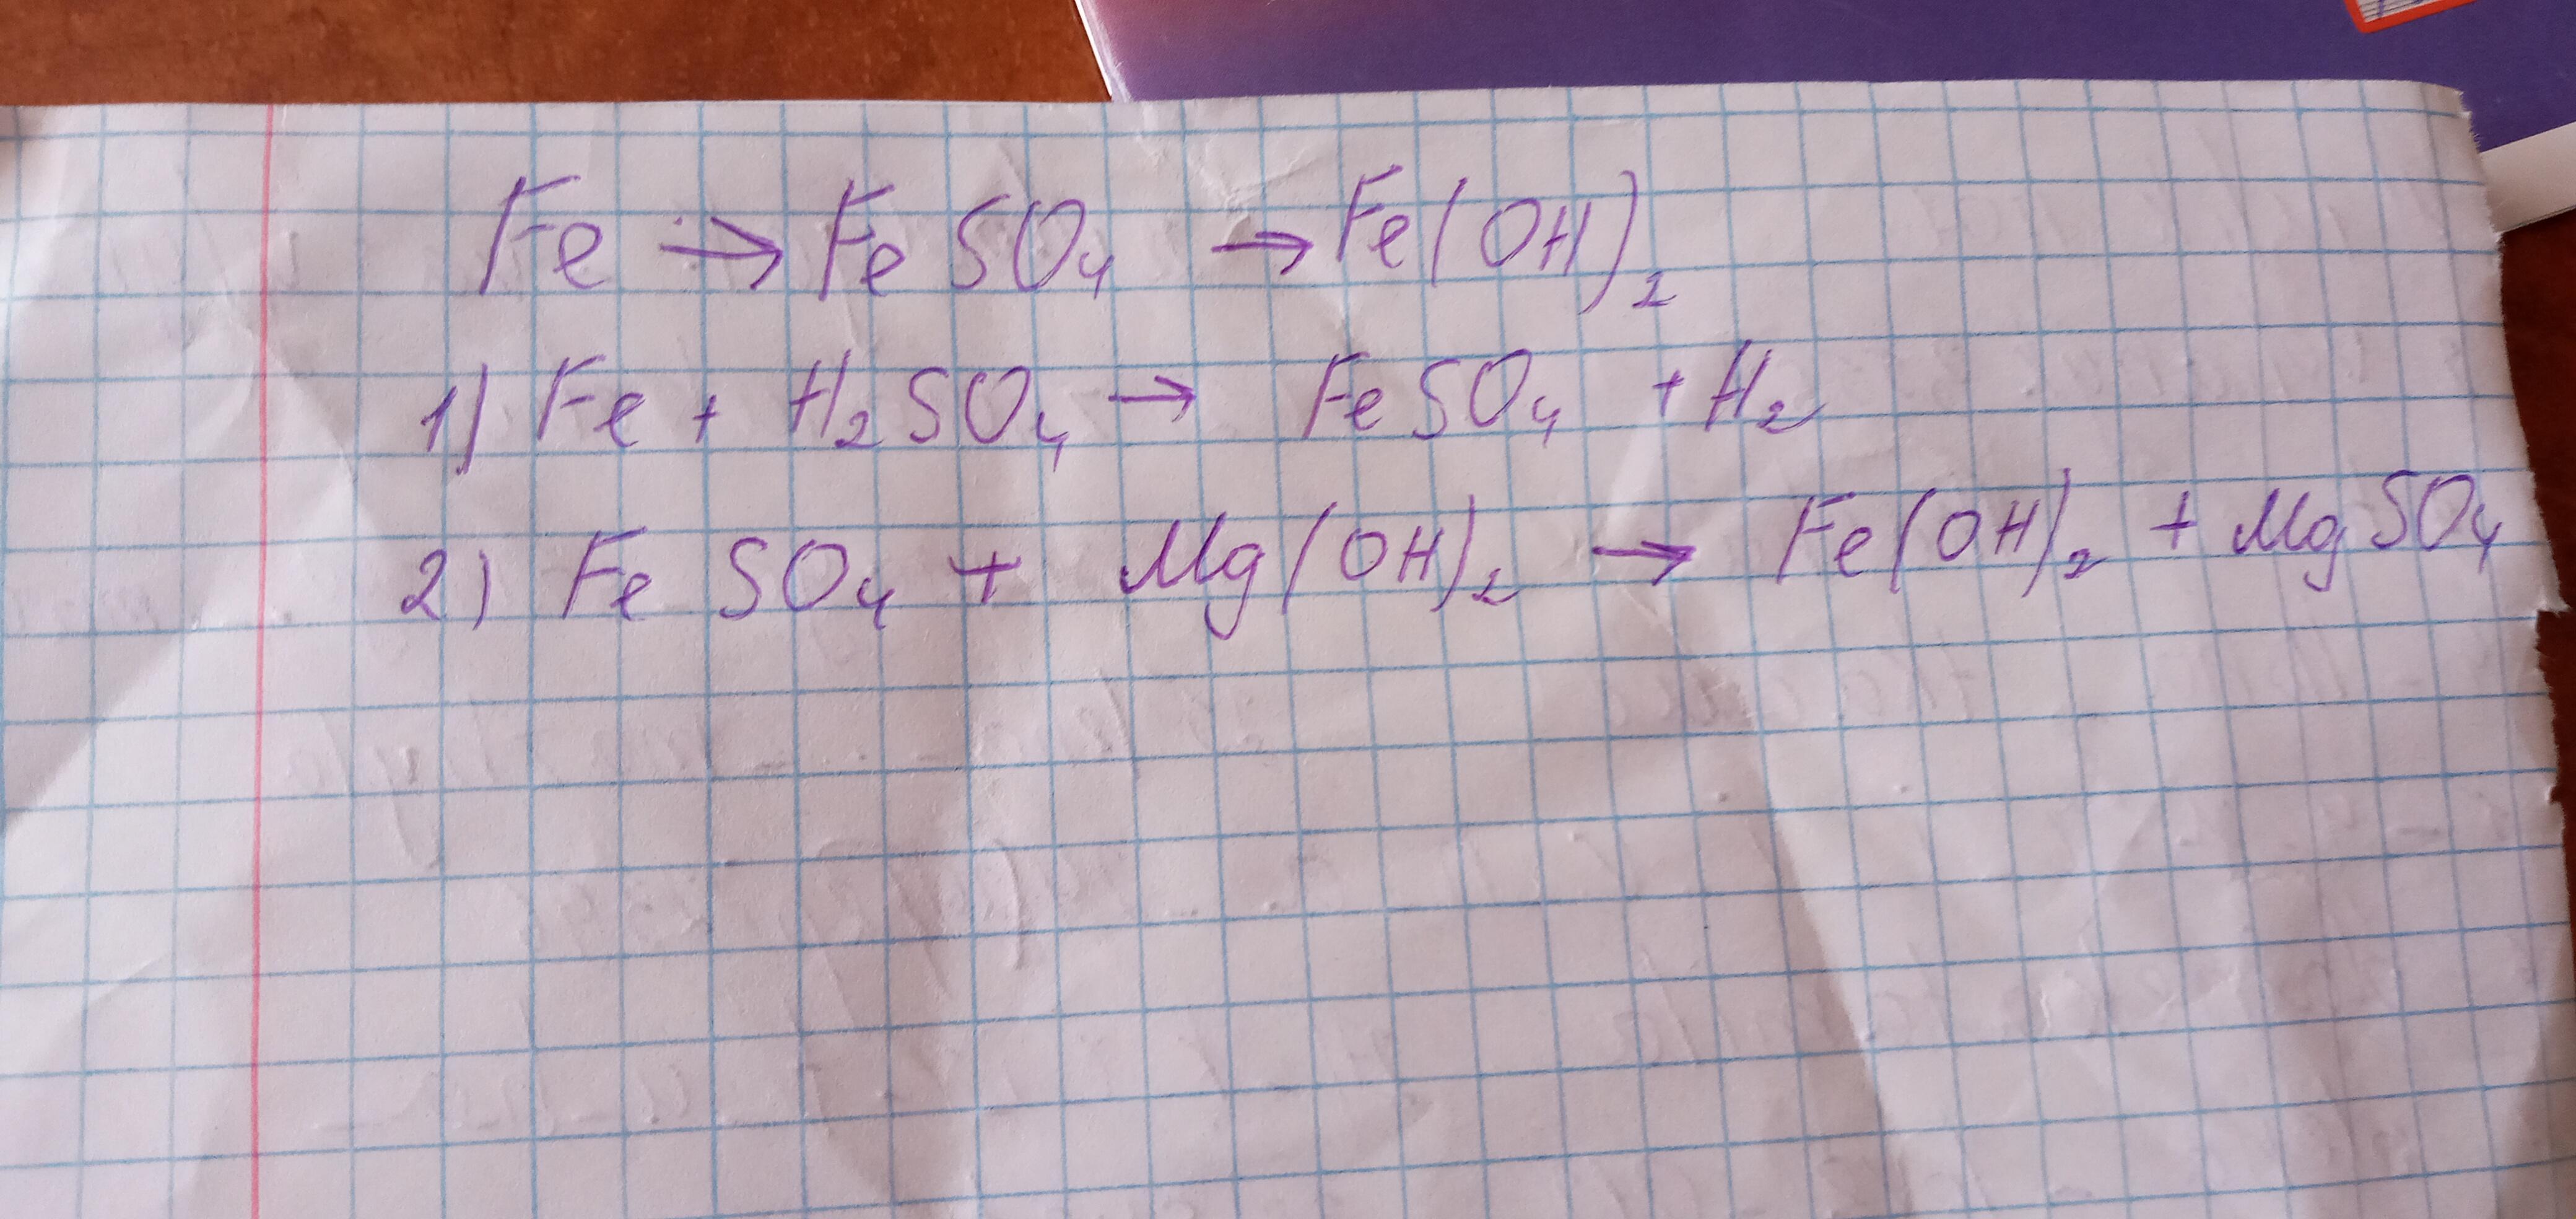 Fe → FeSO₄ → Fe(OH)₂
1) Fe + H₂SO₄ → FeSO₄ + H₂
2) FeSO₄ + Mg(OH)₂ → Fe(OH)₂ + MgSO₄